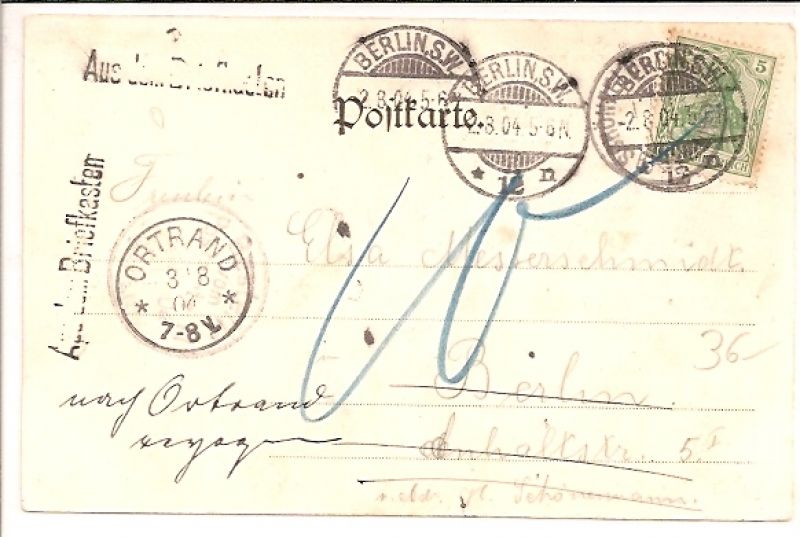 Aus dem Briefkasten
BERLIN.S.W.
2.8.04.5-6N.
BERLIN.S.W.
2.8.04 5-6N.
* 12 n
BERLIN.S.W.
-2.8.04 5-6N.
12 n
5
Postkarte.
Aus dem Briefkasten
Fräulein
Elsa Messerschmidt
ORTRAND
3 8
04
* *
7-8V.
36-
Berlin.
nach Ortrand
Anhaltstr. 5 I
Schönemann.